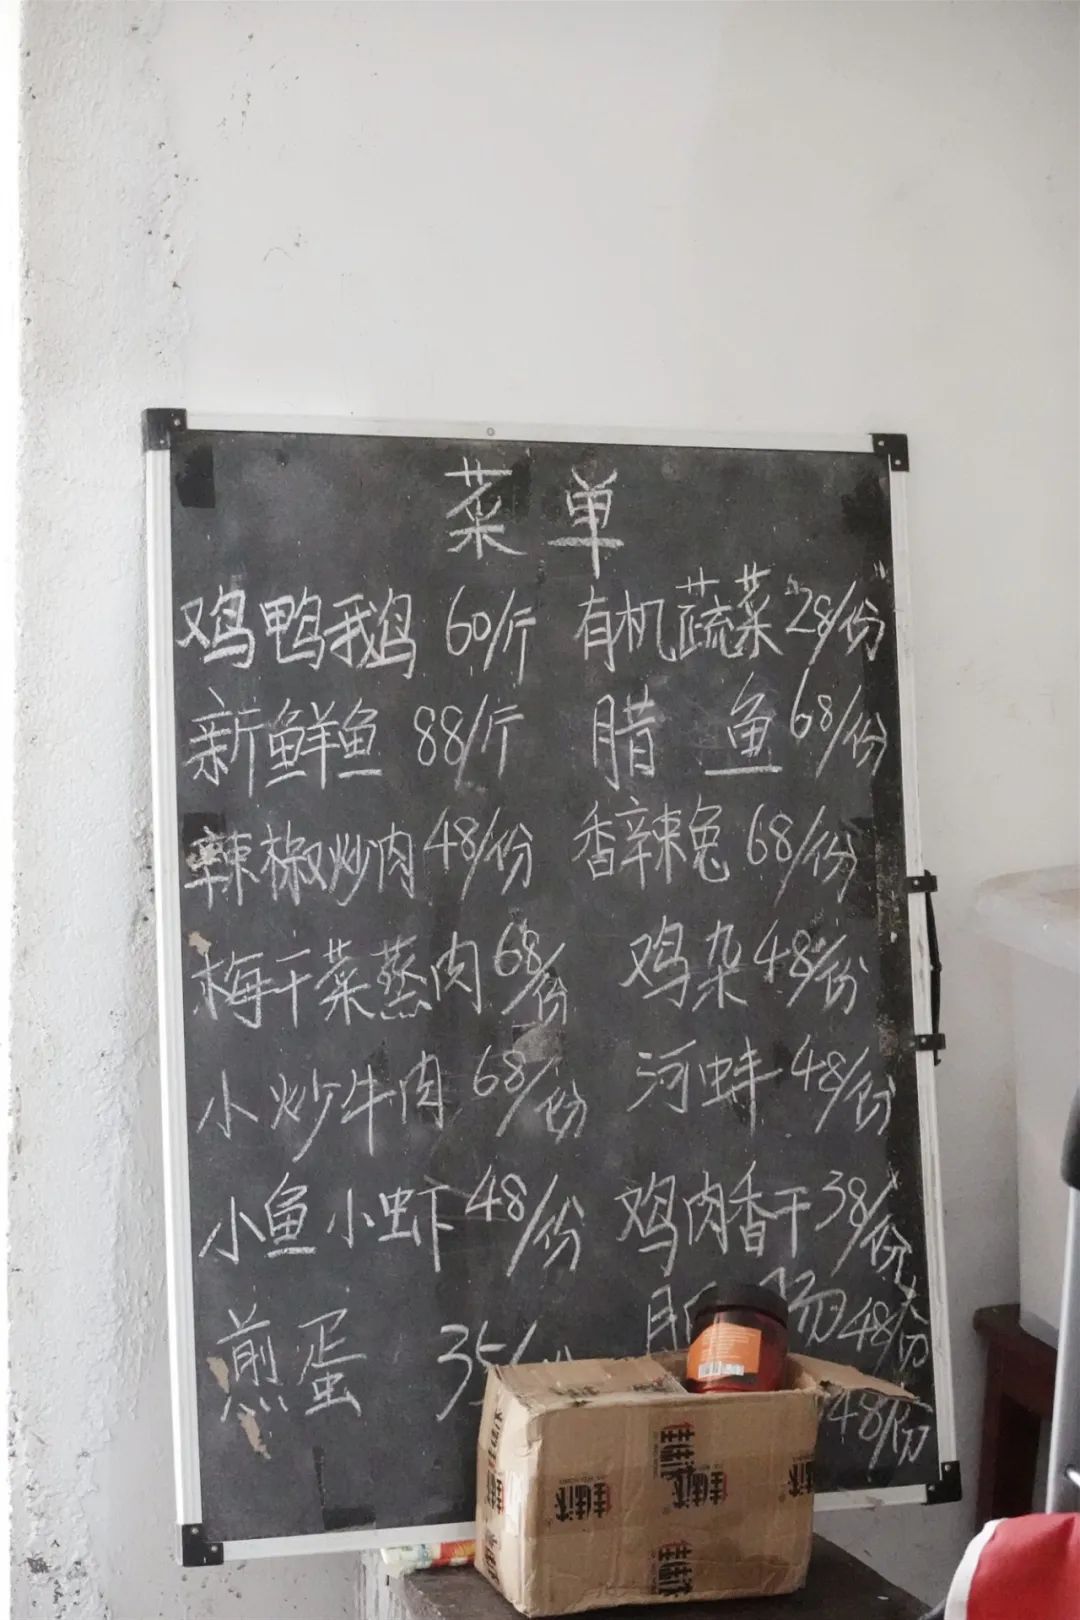 菜单
鸡鸭鹅 60/斤 有机蔬菜 28/份
新鲜鱼 88/斤 腊鱼 68/份
辣椒炒肉 48/份 香辣兔 68/份
梅干菜蒸肉 68/份 鸡杂 48/份
小炒牛肉 68/份 河蚌 48/份
小鱼小虾 48/份 鸡肉香干 38/份
煎蛋 35/ 48/份
48/份
佳偂沵